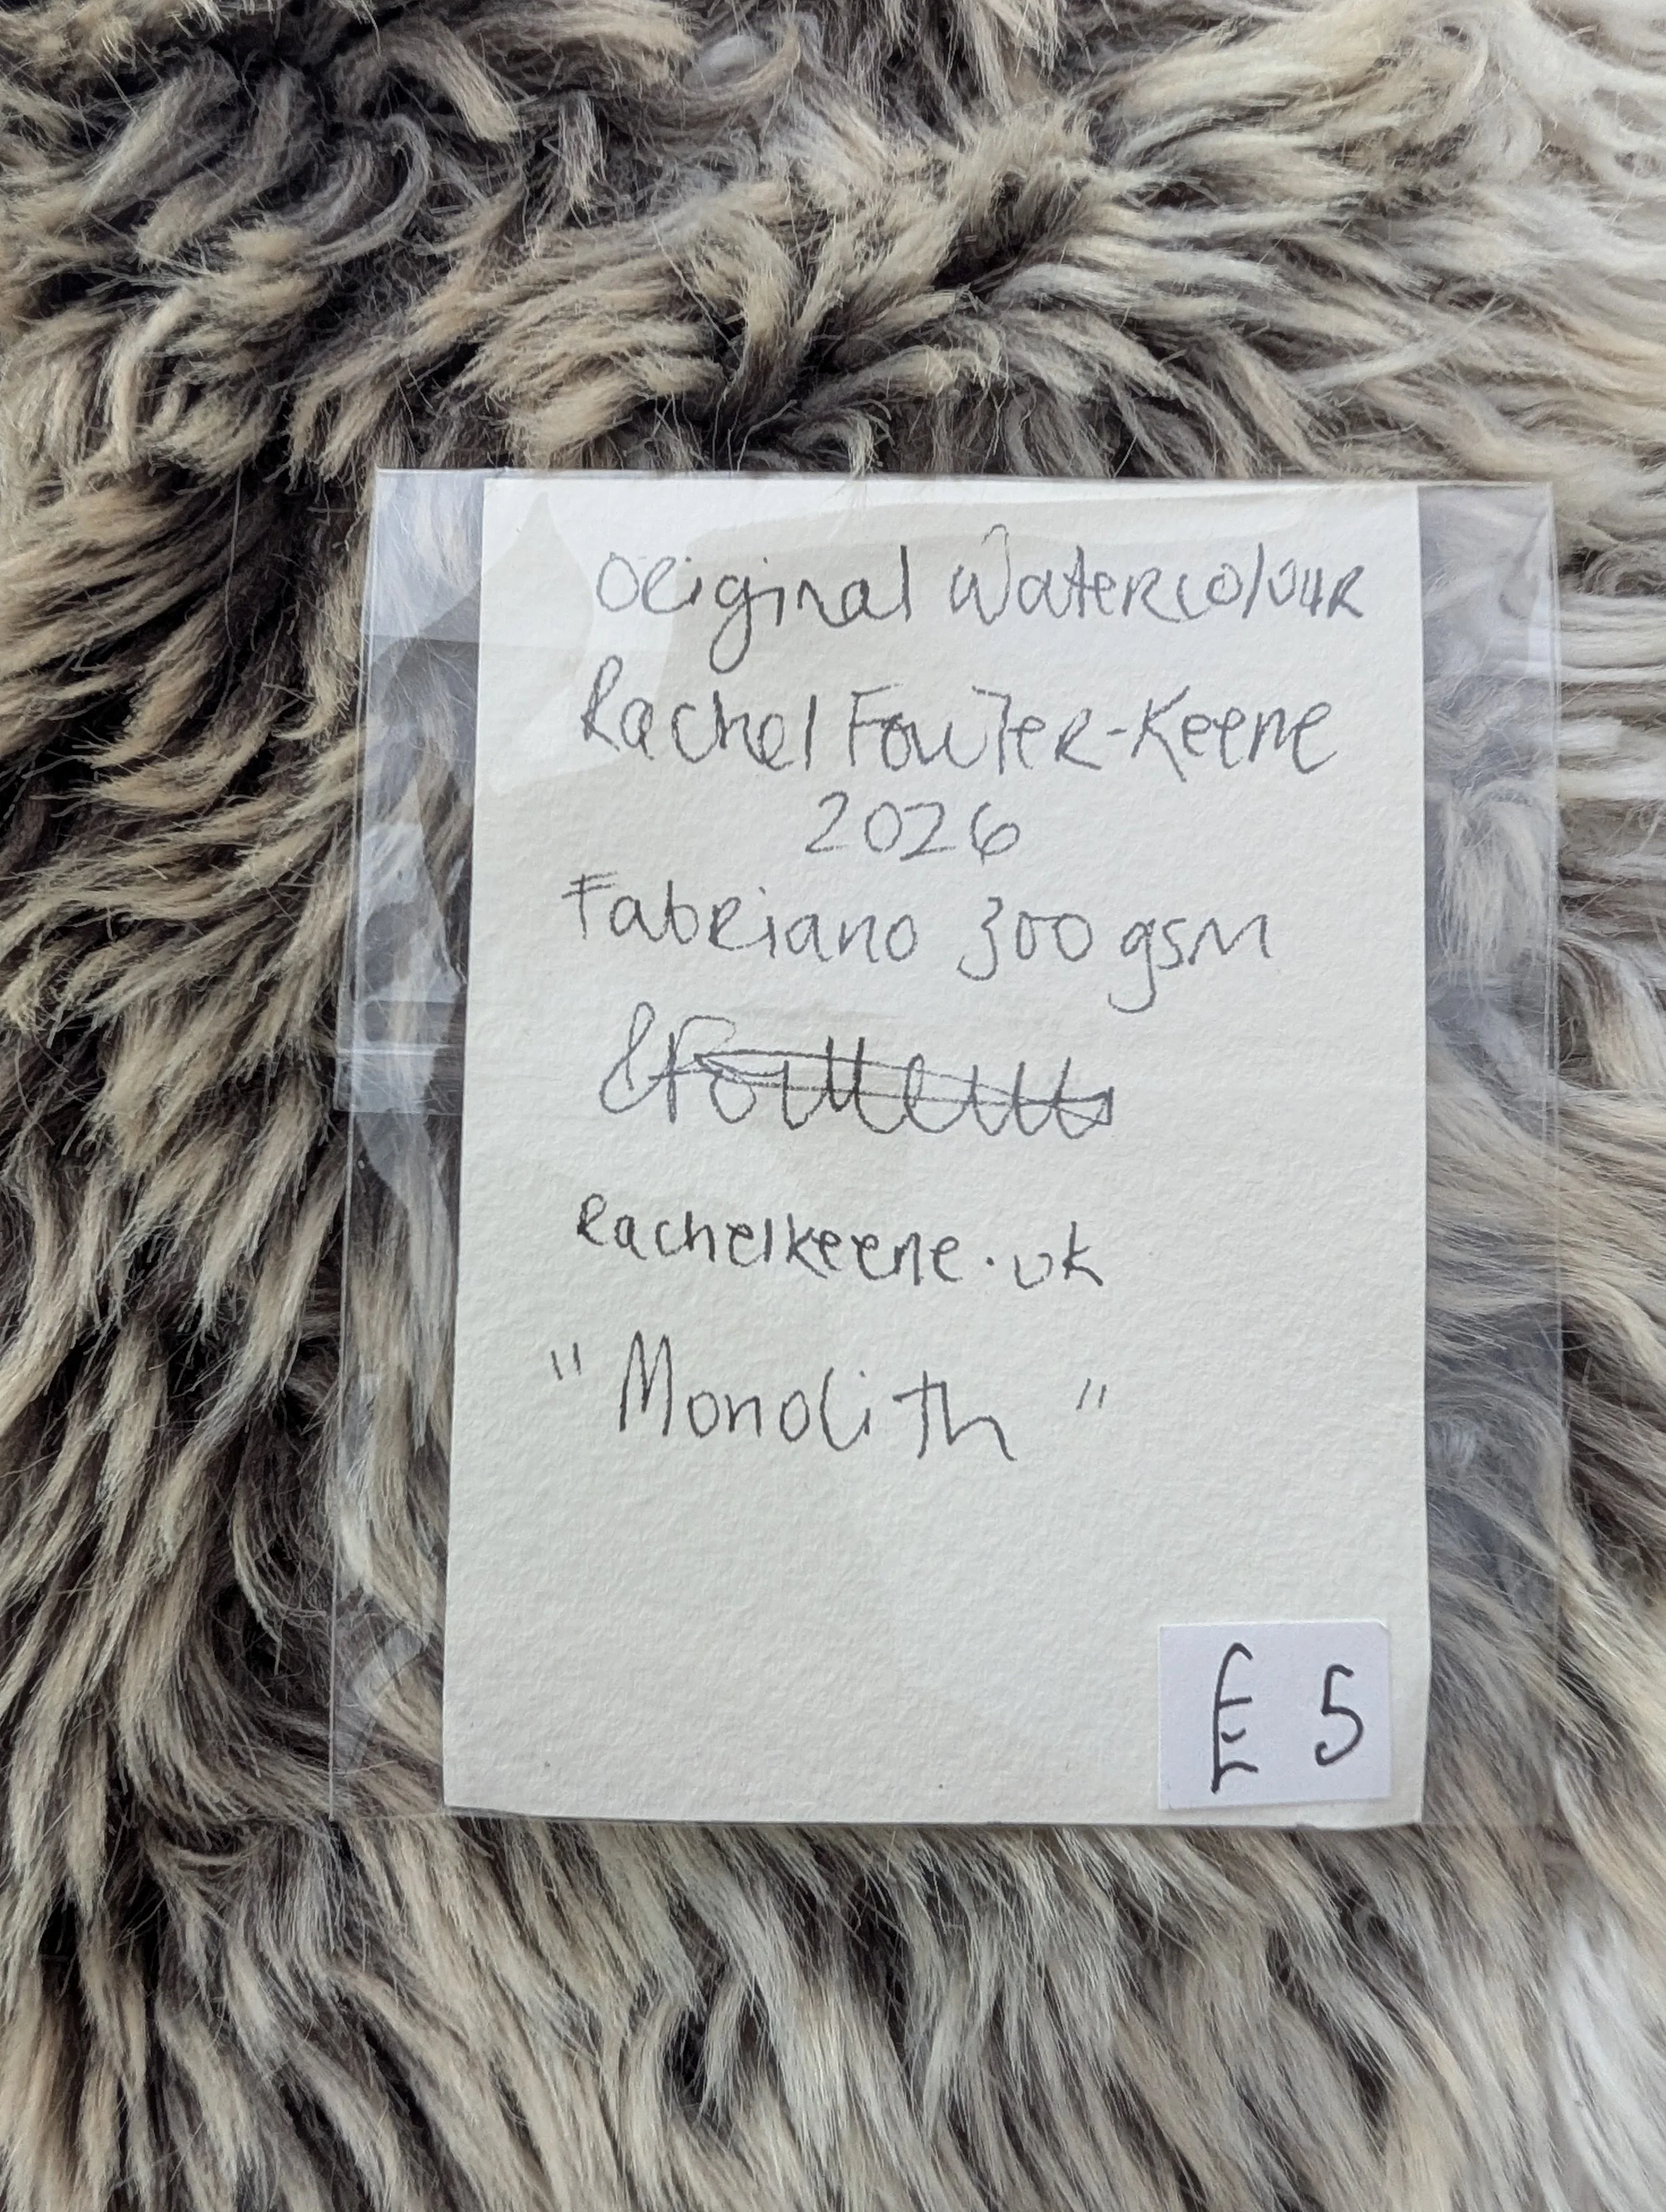 Original Watercolour
Rachel Fowler-Keene
2026
Fabriano 300 gsm
rachelkeene.uk
"Monolith"
£5